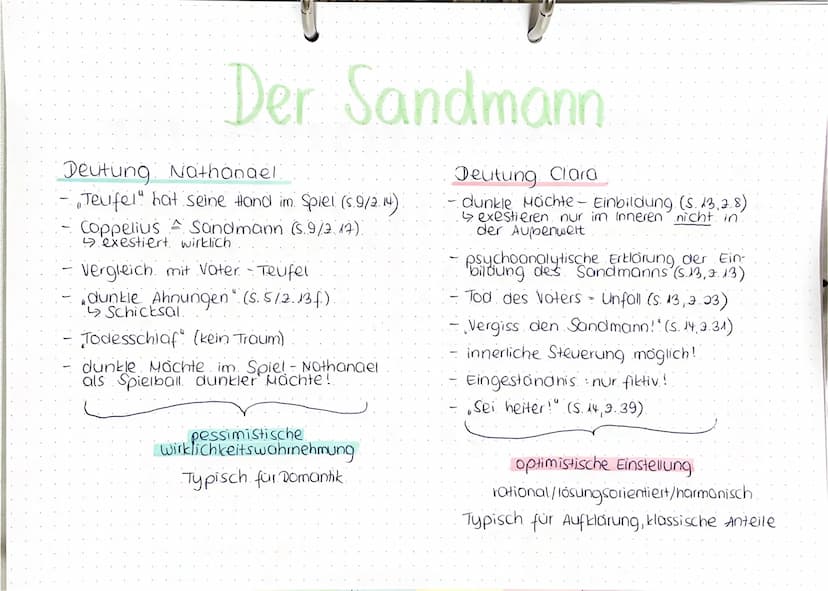 Der Sandmann
Deutung Nathanael
- „Teufel“ hat seine Hand im Spiel (S.9/Z.14)
- Coppelius ≙ Sandmann (S.9/Z.17)
↳ exestiert wirklich
- Vergleich mit Vater - Teufel
- „dunkle Ahnungen“ (S.5/Z.13f.)
↳ Schicksal
- „Todesschlaf“ (kein Traum)
- dunkle Mächte im Spiel - Nathanael
als Spielball dunkler Mächte!
pessimistische
wirklichkeitswahrnehmung
Typisch für Romantik
Deutung Clara
- dunkle Mächte - Einbildung (S.13, Z.8)
↳ exestieren nur im Inneren nicht in
der Außenwelt
- psychoanalytische Erklärung der Ein-
bildung des Sandmanns (S.13, Z.13)
- Tod des Vaters = Unfall (S.13, Z.23)
- „Vergiss den Sandmann!“ (S.14, Z.31)
- innerliche Steuerung möglich!
- Eingeständnis : nur fiktiv!
- „Sei heiter!“ (S.14, Z.39)
optimistische Einstellung
rational/lösungsorientiert/harmonisch
Typisch für Aufklärung, klassische Anteile